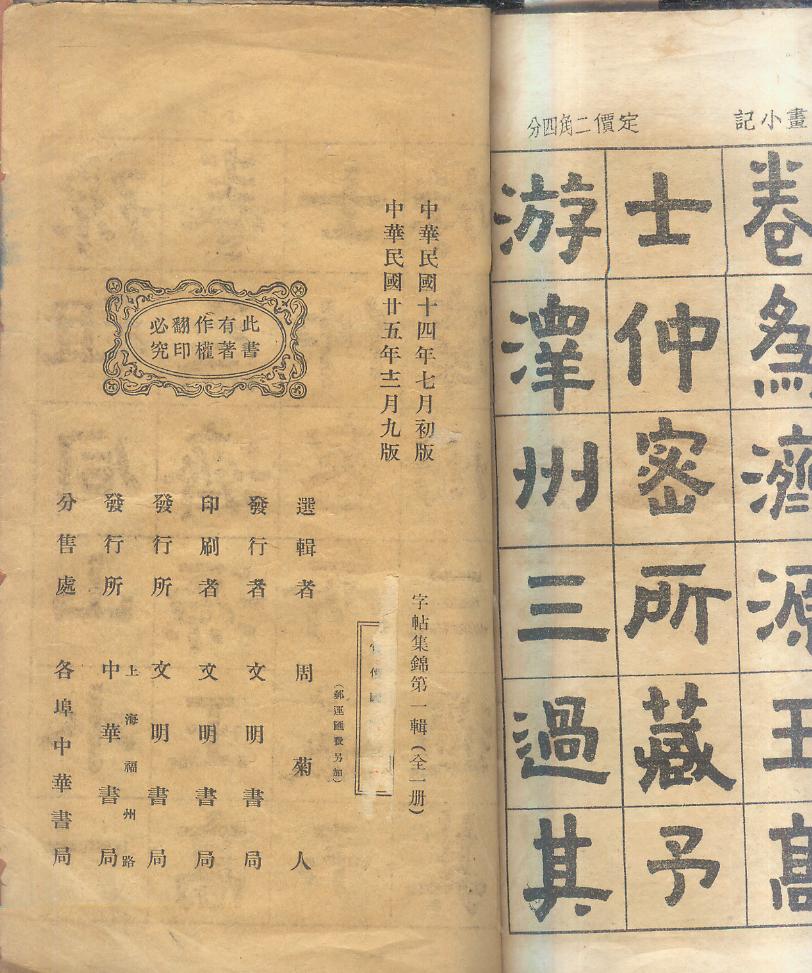 畫小記
定價二角四分
卷為濟源王高
士仲密所藏予
游澤州三過其
中華民國十四年七月初版
中華民國廿五年十二月九版
此書
有著
作權
翻印
必究
字帖集錦第一輯(全一册)
(郵運匯費另加)
選輯者 周菊人
發行者 文明書局
印刷者 文明書局
發行所 文明書局
上海福州路
發行所 中華書局
分售處 各埠中華書局